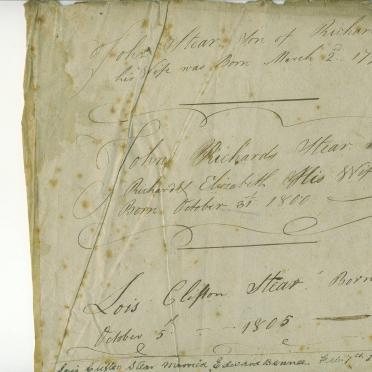 John Stear Son of Richar
his Wife was Born March 2d 17
John Richards Stear
Richard & Elizabeth His Wif
Born October 31st 1800
Lois Clifton Stear Born
October 5th 1805
Lois Clifton Stear Married Edward Bennee Feb 7th